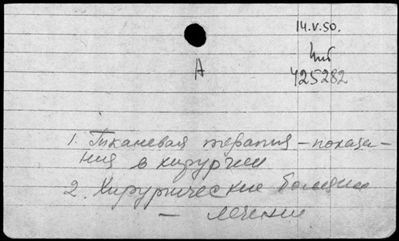 14.V.50.
425282
А
1. Тканевая терапия – показа-
ния в хирургии
2. Хирургические болезни
– лечение